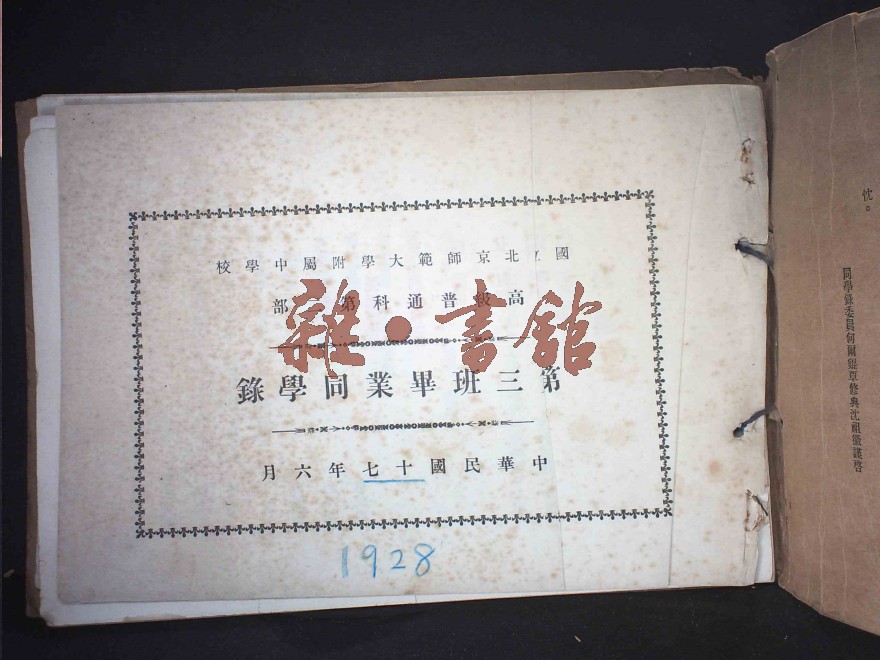 忱。
同學錄委員何爾錕覃修典沈祖徽謹啓
國立北京師範大學附屬中學校
高級普通科第部
第三班畢業同學錄
中華民國十七年六月
1928
雜•書館